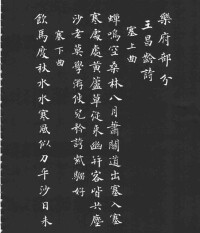 樂府部分
王昌齡詩
塞上曲
蟬鳴空桑林八月蕭關道出塞入塞
寒處處黃蘆草從來幽并客皆共塵
沙老莫學游俠兒矜誇紫騮好
塞下曲
飲馬度秋水水寒風似刀平沙日未